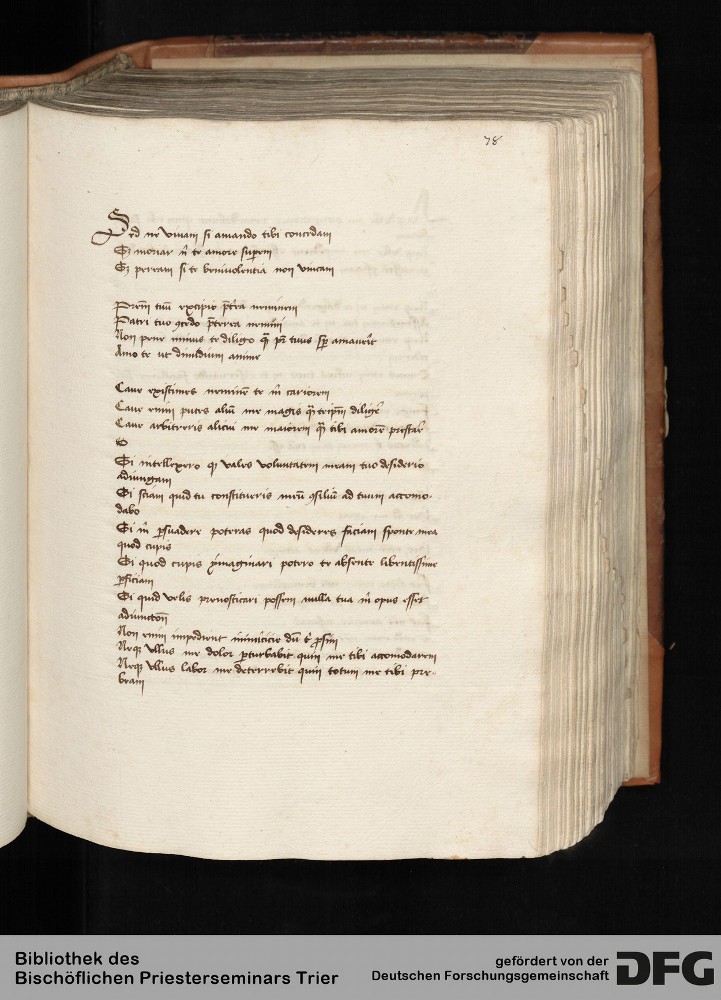 78
Sed ne vivam si amando tibi concedam
Et moriar ñ te amore superem
Et peream si te benivolentia non vincam
Prem̃ tuũ excipio p̃terea neminem
Patri tuo ꝯcedo p̃terea nemini
Non pene minus te diligo q̃ pr̃ tuus sp̃ amaverit
Amo te ut dimidium anime
Cave existimes neminẽ te m̃ cariorem
Cave enim putes aliũ me magis q̃ teip̃m diligẽ
Cave arbitreris alicui me maiorem q̃ tibi amorẽ prestar̃
Si intellexero q̃ vales voluntatem meam tuo desiderio
adiungam
Si sciam quid tu constitueris meũ ꝯsiliũ ad tuum accomo-
dabo
Si m̃ ꝑsuadere poteras quod desideres faciam sponte mea
quod cupis
Si quod cupis ymaginari potero te absente libentissime
ꝑficiam
Si quid velis prenosticari possem nulla tua m̃ opus esset
Non enim impedient inimicicie dũ t̃ ꝓsim
Neq̃ ullus me dolor ꝑturbabit quin me tibi accomodarem
Neq̃ ullus labor me deterrebit quin totum me tibi pre-
beam
Bibliothek des
Bischöflichen Priesterseminars Trier
gefördert von der
Deutschen Forschungsgemeinschaft
DFG